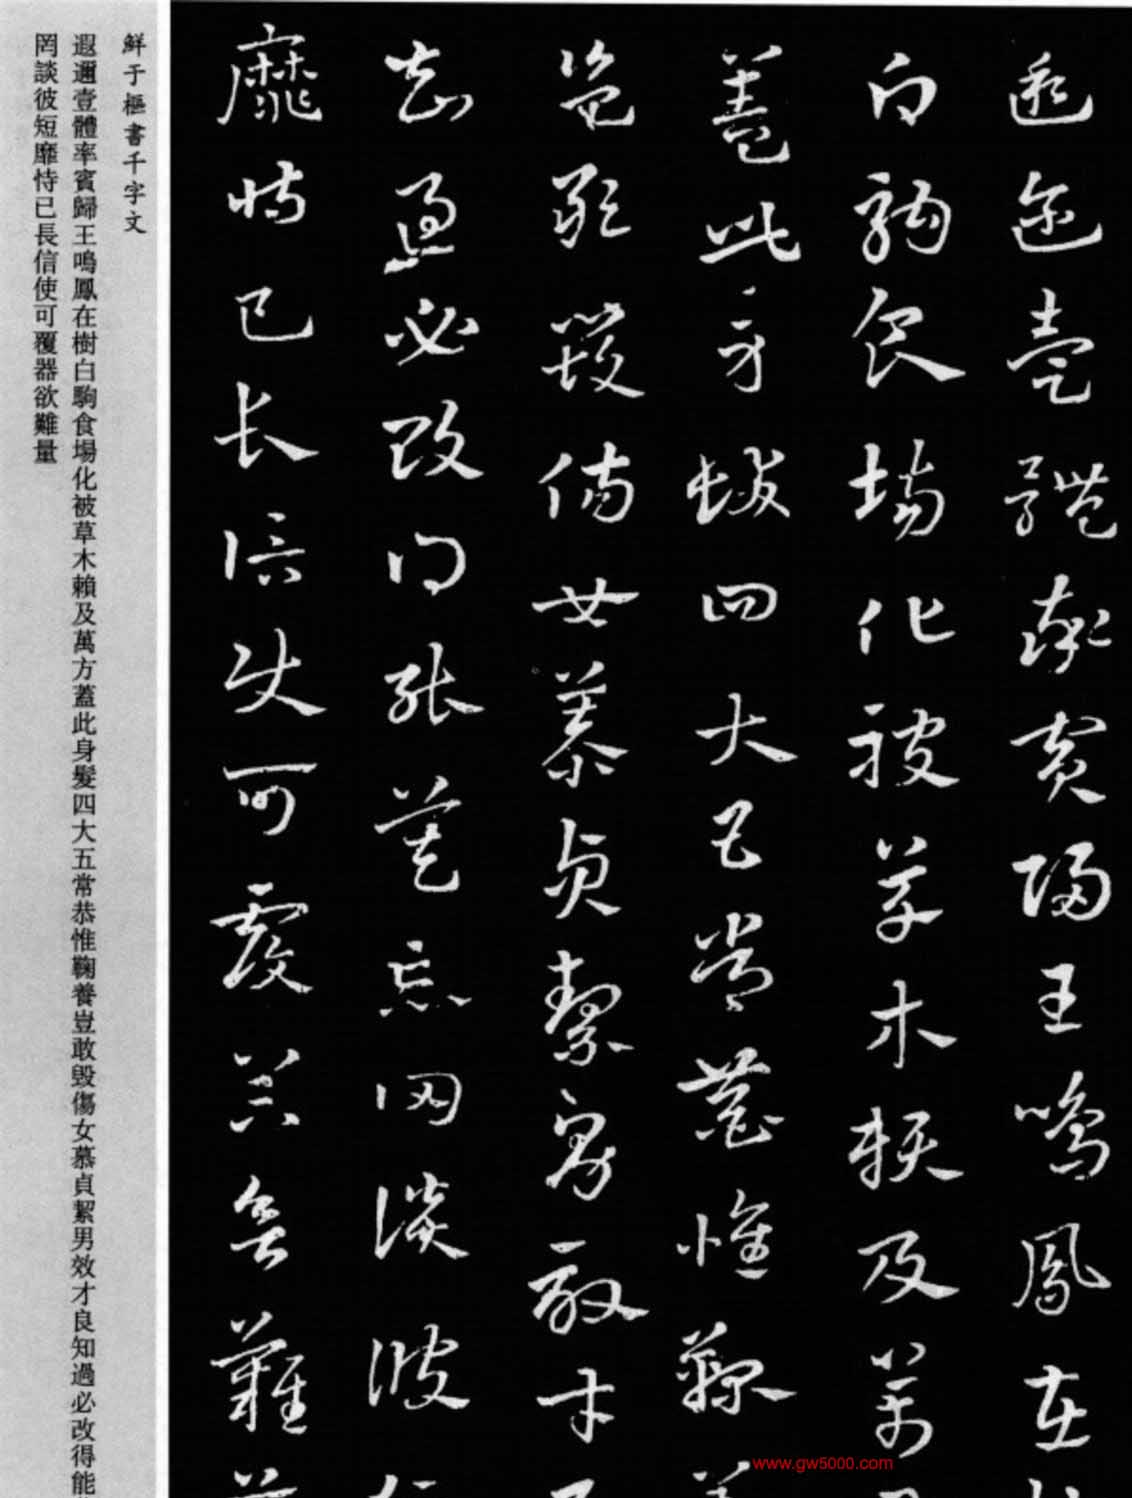 遐邇壹體率賓歸王鳴鳳在
白駒食場化被草木賴及萬
蓋此身髮四大五常恭惟鞠養
豈敢毀傷女慕貞絜男效才
知過必改得能莫忘罔談彼
靡恃己長信使可覆器欲難
鮮于樞書千字文
遐邇壹體率賓歸王鳴鳳在樹白駒食場化被草木賴及萬方蓋此身髮四大五常恭惟鞠養豈敢毀傷女慕貞絜男效才良知過必改得能
罔談彼短靡恃已長信使可覆器欲難量
www.gw5000.com